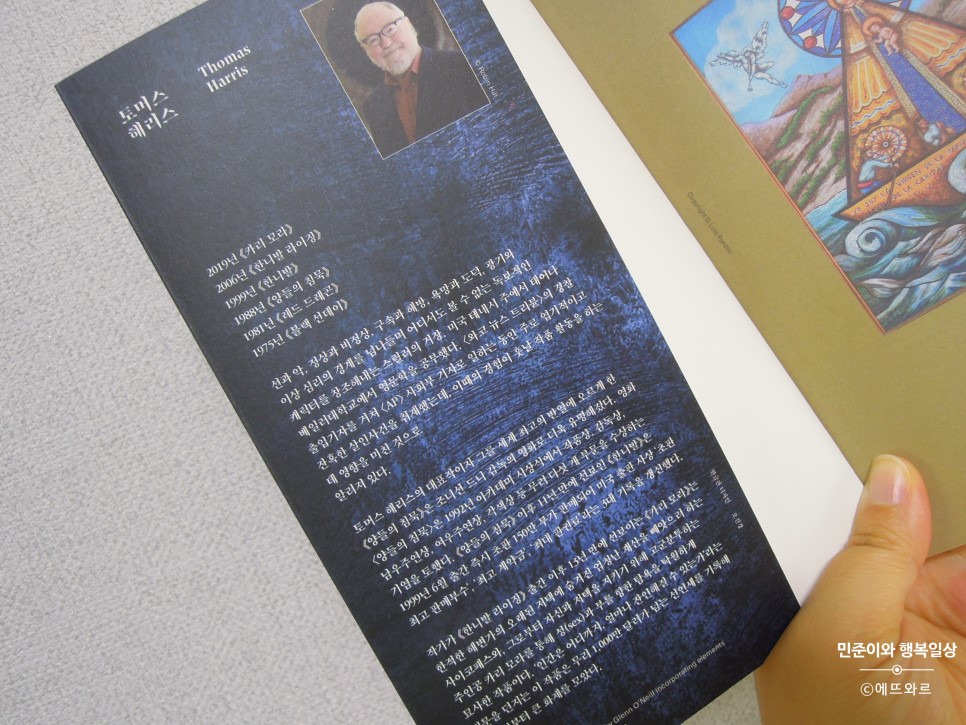 토머스
해리스
Thomas
Harris
© Robin Hill
2019년 《카리 모라》
2006년 《한니발 라이징》
1999년 《한니발》
1988년 《양들의 침묵》
1981년 《레드 드래곤》
1975년 《블랙 선데이》
선과 악, 정상과 비정상, 구속과 해방, 욕망과 도덕, 광기의
이상 심리의 경계를 넘나들며 어디서도 볼 수 없는 독보적인
캐릭터를 창조해내는 스릴러의 거장. 미국 테네시 주에서 태어나
베일러대학교에서 영문학을 공부했다. 〈와코 뉴스 트리뷴〉의 경찰
출입기자를 거쳐 〈AP〉 사회부 기자로 일하는 동안 주로 엽기적이고
잔혹한 살인사건을 취재했는데, 이때의 경험이 훗날 작품 활동을 하는
데 영향을 미친 것으로
알려져 있다.
토머스 해리스의 대표작이자 그를 세계 최고의 반열에 오르게 한
《양들의 침묵》은 조나선 드미 감독의 영화로 더욱 유명해졌다. 영화
〈양들의 침묵〉은 1992년 아카데미 시상식에서 작품상, 감독상,
남우주연상, 여우주연상, 각색상 등 주요 다섯 개 부문을 수상하는
기염을 토했다. 《양들의 침묵》 이후 11년 만에 선보인 《한니발》은
1999년 6월 출간 즉시 초판 150만 부가 판매되며 미국 출판 사상 '초판
최고 판매부수', '최고 계약금', '최대 판권료'라는 3대 기록을 갱신했다.
작가가 《한니발 라이징》 출간 이후 13년 만에 선보이는 《카리 모라》는
한적한 해변가의 오래된 저택에 숨겨진 엄청난 재산을 빼앗으려 하는
사이코패스와, 그로부터 자신과 저택을 지키기 위해 고군분투하는
주인공 카리 모라를 통해 성(sex)과 부를 향한 탐욕을 탁월하게
묘사한 작품이다. '인간은 어디까지, 얼마나 잔인해질 수 있는가'라는
질문을 던지는 이 작품은 무려 1,000만 달러가 넘는 선인세를 기록해
부터 큰 화제를 모았다.
Glenn O'Neill incorporating elements
민준이와 행복일상
©에뜨와르